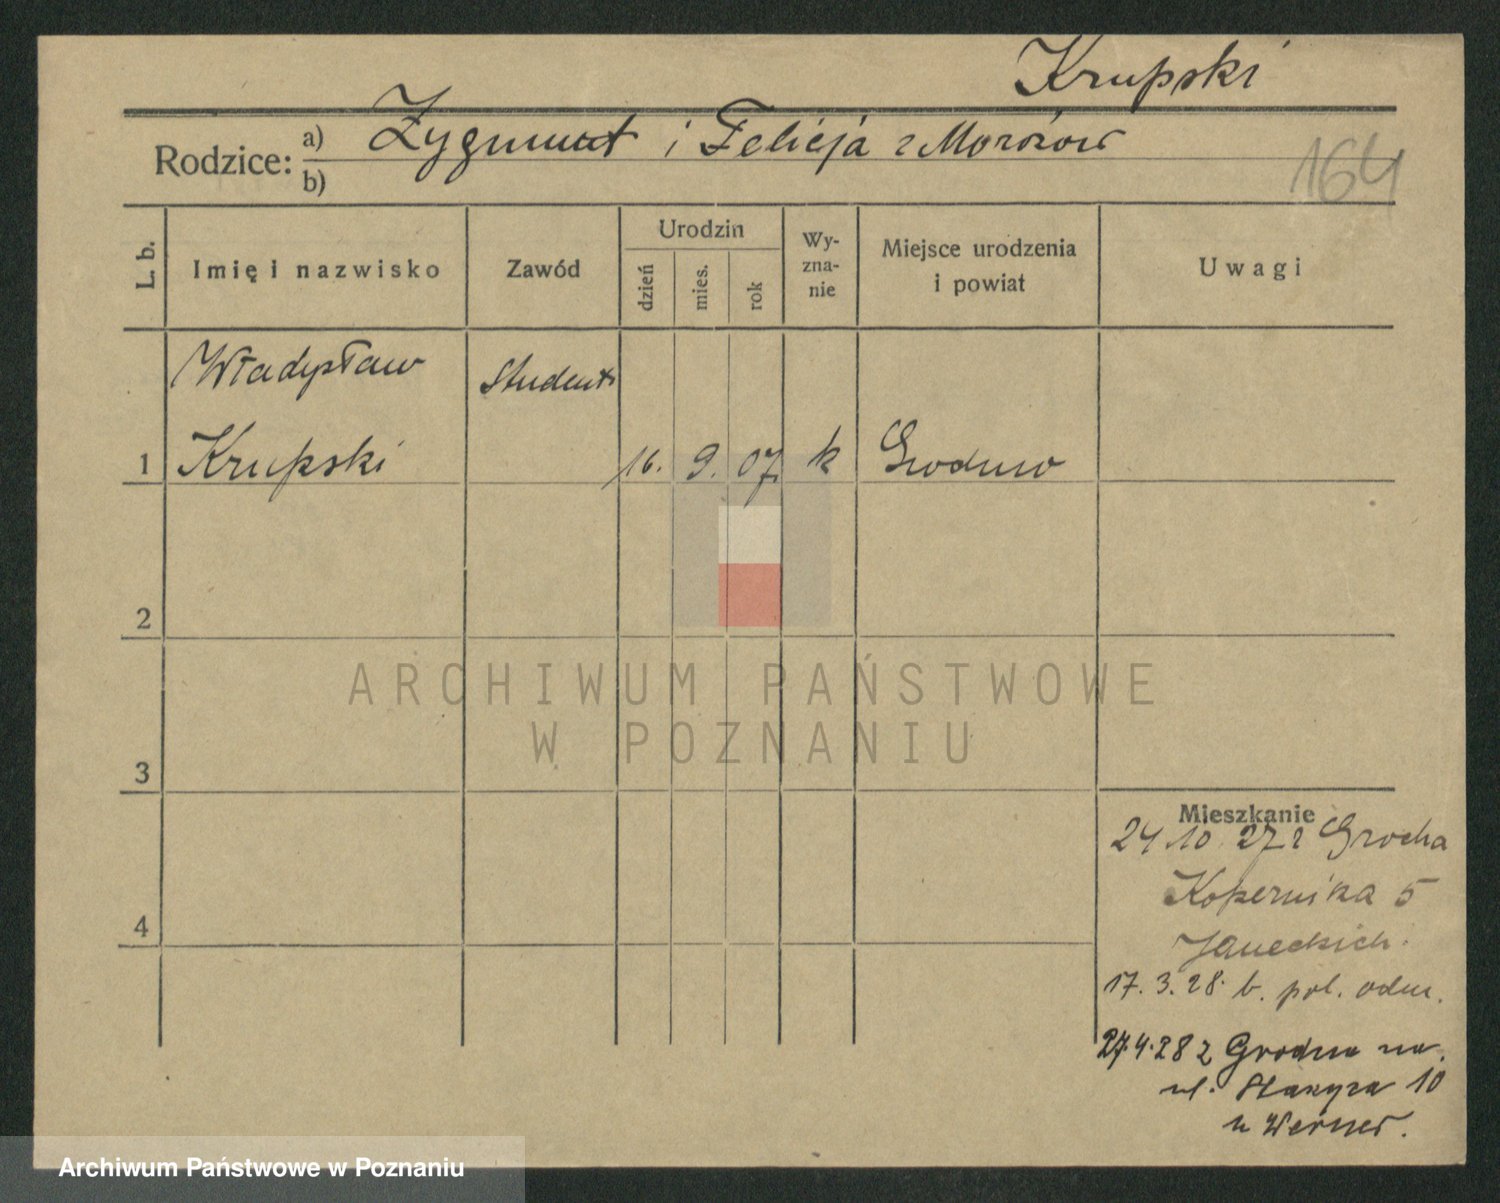 Krupski
Rodzice: a) Zygmunt i Felicja z Morozow
b)
164
L. b.
Imię i nazwisko
Zawód
Urodzin
dzień
mies.
rok
Wy-
zna-
nie
Miejsce urodzenia
i powiat
Uwagi
Władysław
Student
1 Krupski 16. 9. 07. k Grodno
2
3
4
ARCHIWUM PAŃSTWOWE
W POZNANIU
Mieszkanie
24.10.27 z Grodna
Kopernika 5
Janeckich.
17.3.28. b. pol. odm.
27.4.28 z Grodna na
ul. 10
u Werner.
Archiwum Państwowe w Poznaniu